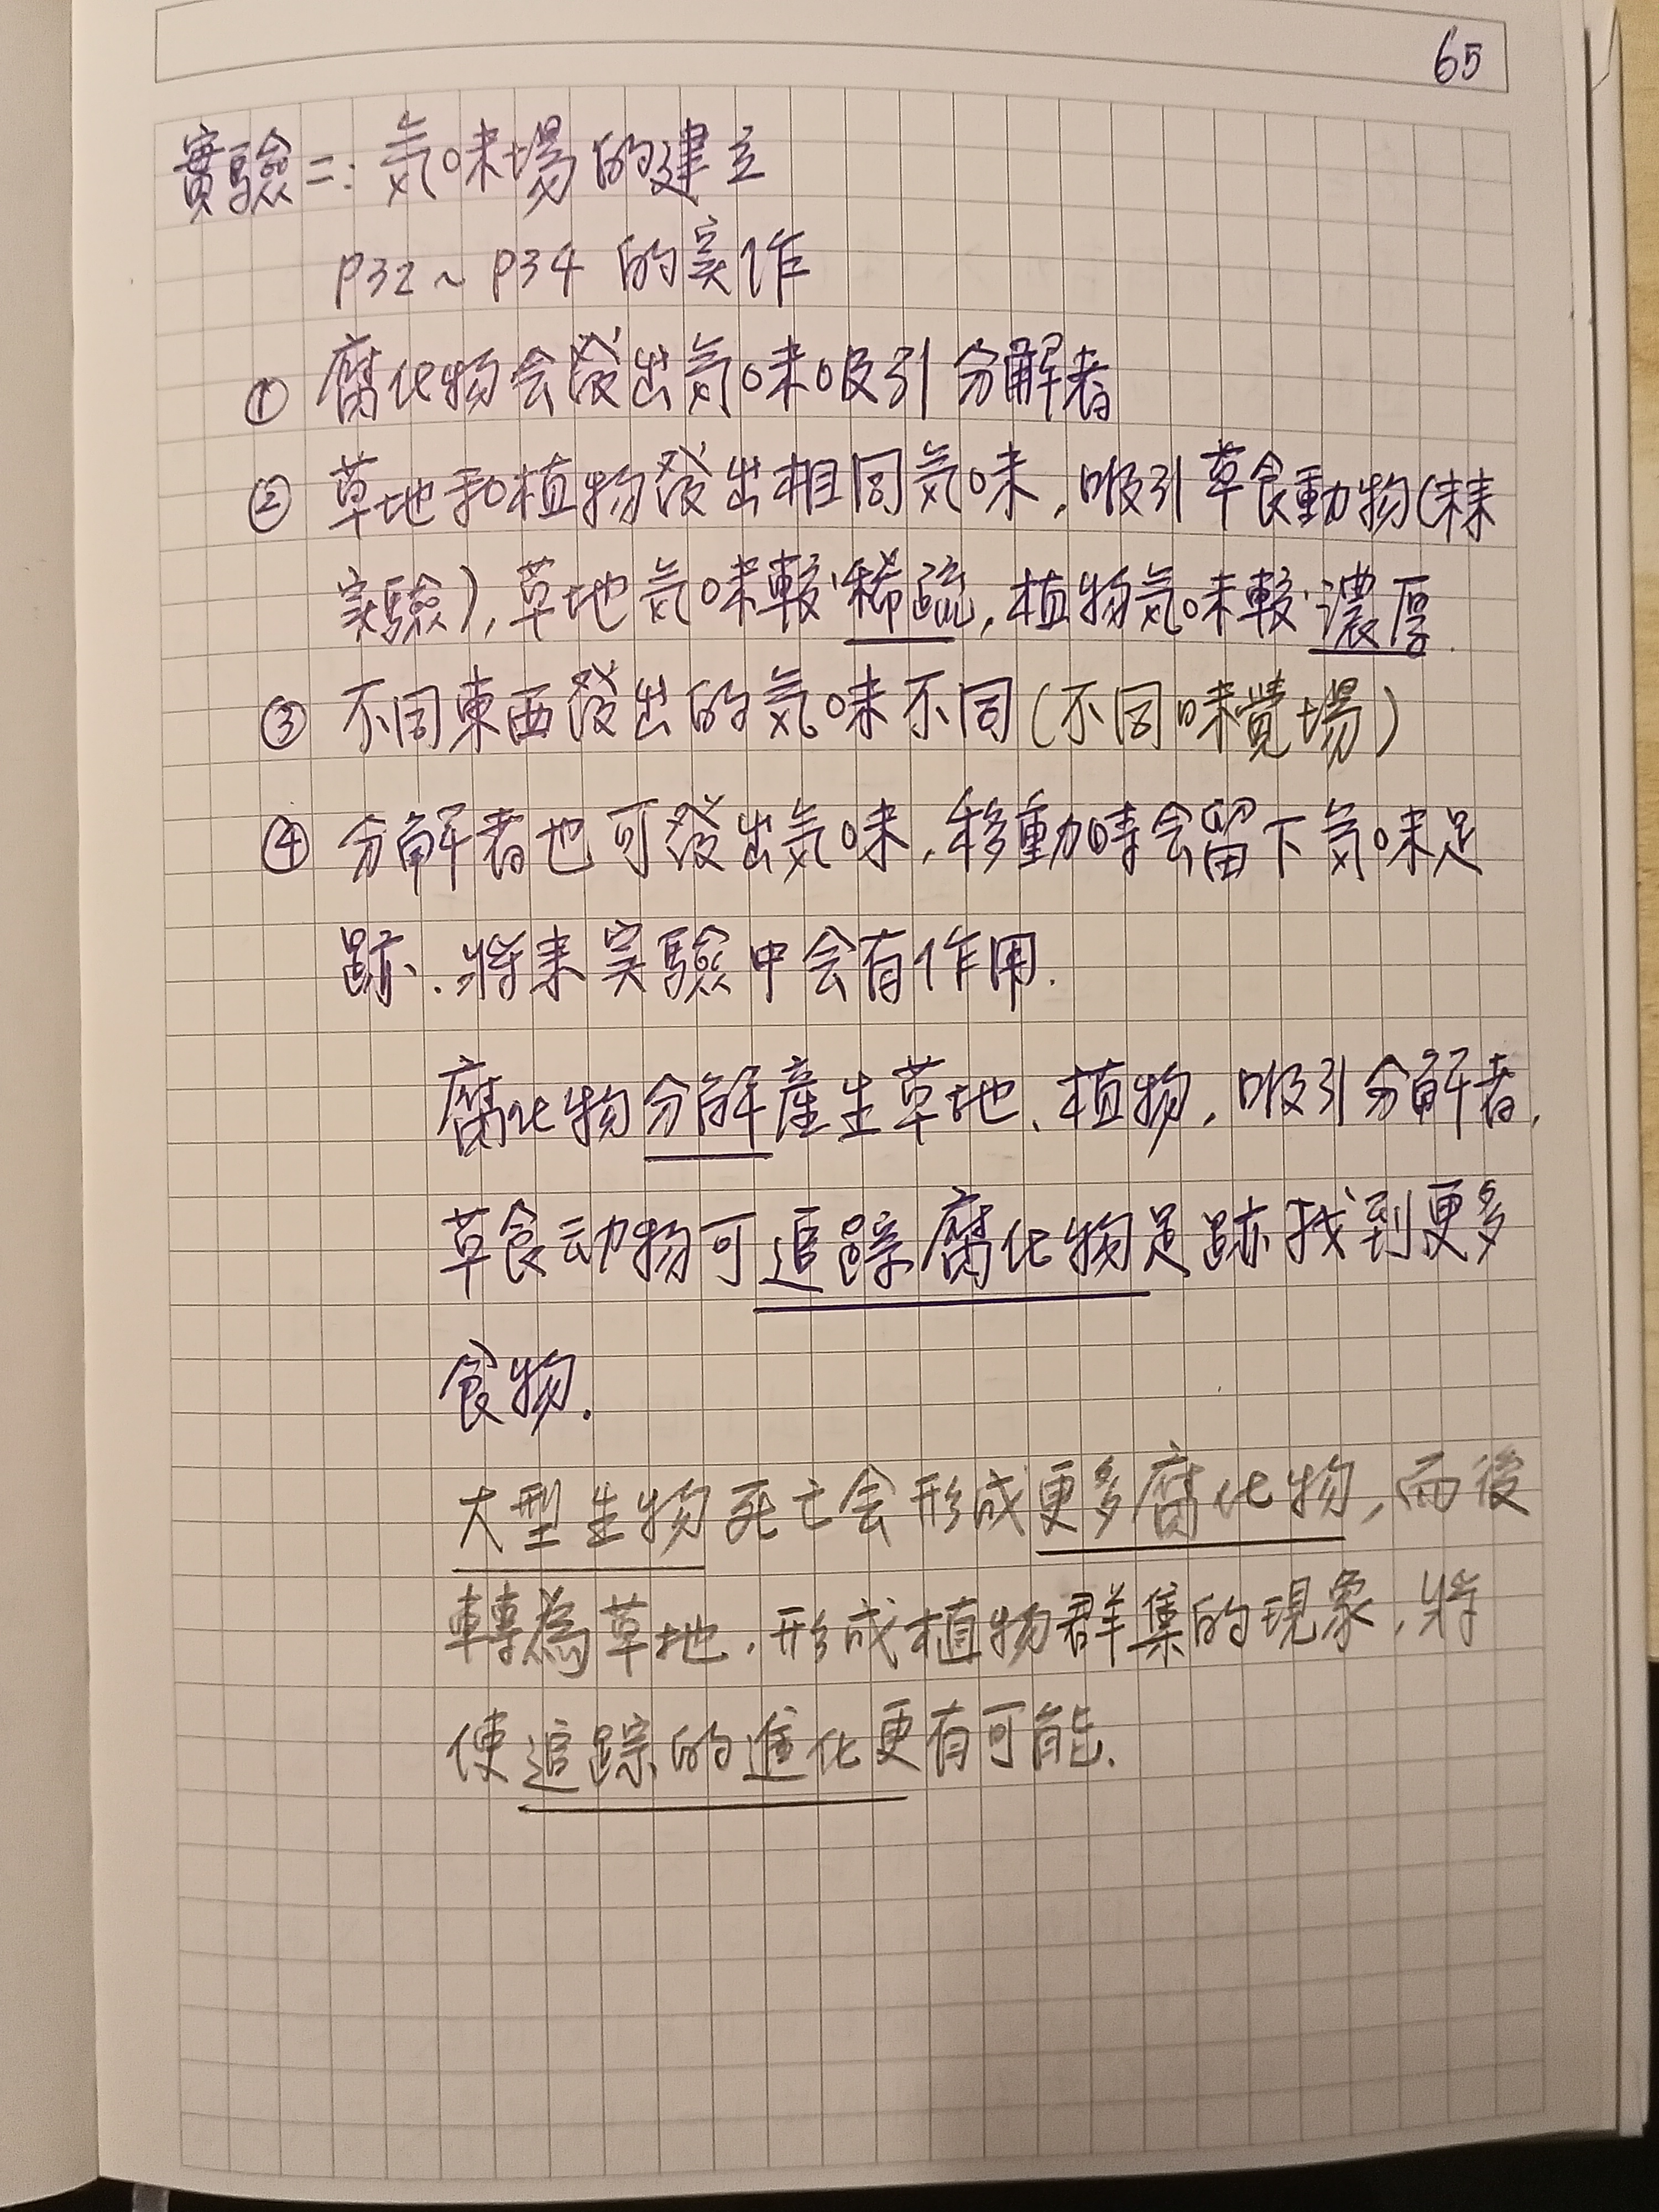 65
實驗二: 気味場的建立
P32~P34 的実作
① 腐化物会發出気味吸引分解者
② 草地和植物發出相同気味,吸引草食動物(未来
実驗),草地気味較稀疏,植物気味較濃厚.
③ 不同東西發出的気味不同(不同味覺場)
④ 分解者也可發出気味,移動時会留下気味足
跡.將来実驗中会有作用.
腐化物分解產生草地、植物,吸引分解者,
草食动物可追踪腐化物足跡找到更多
食物.
大型生物死亡会形成更多腐化物,而後
轉為草地.形成植物群集的現象,將
使追踪的進化更有可能.